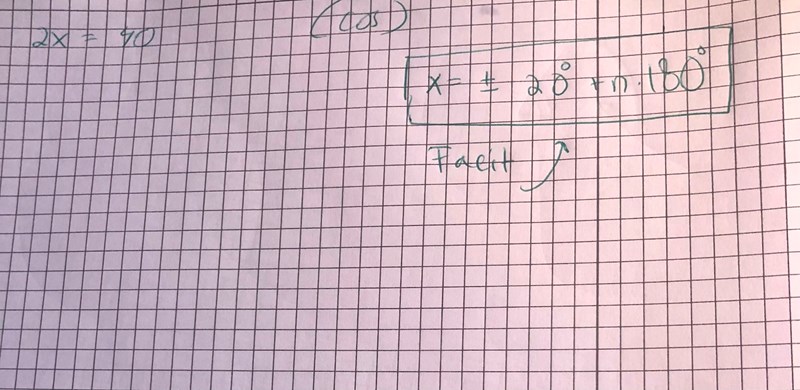 2x = 40
(cos)
x = ± 20° + n · 180°
Facit